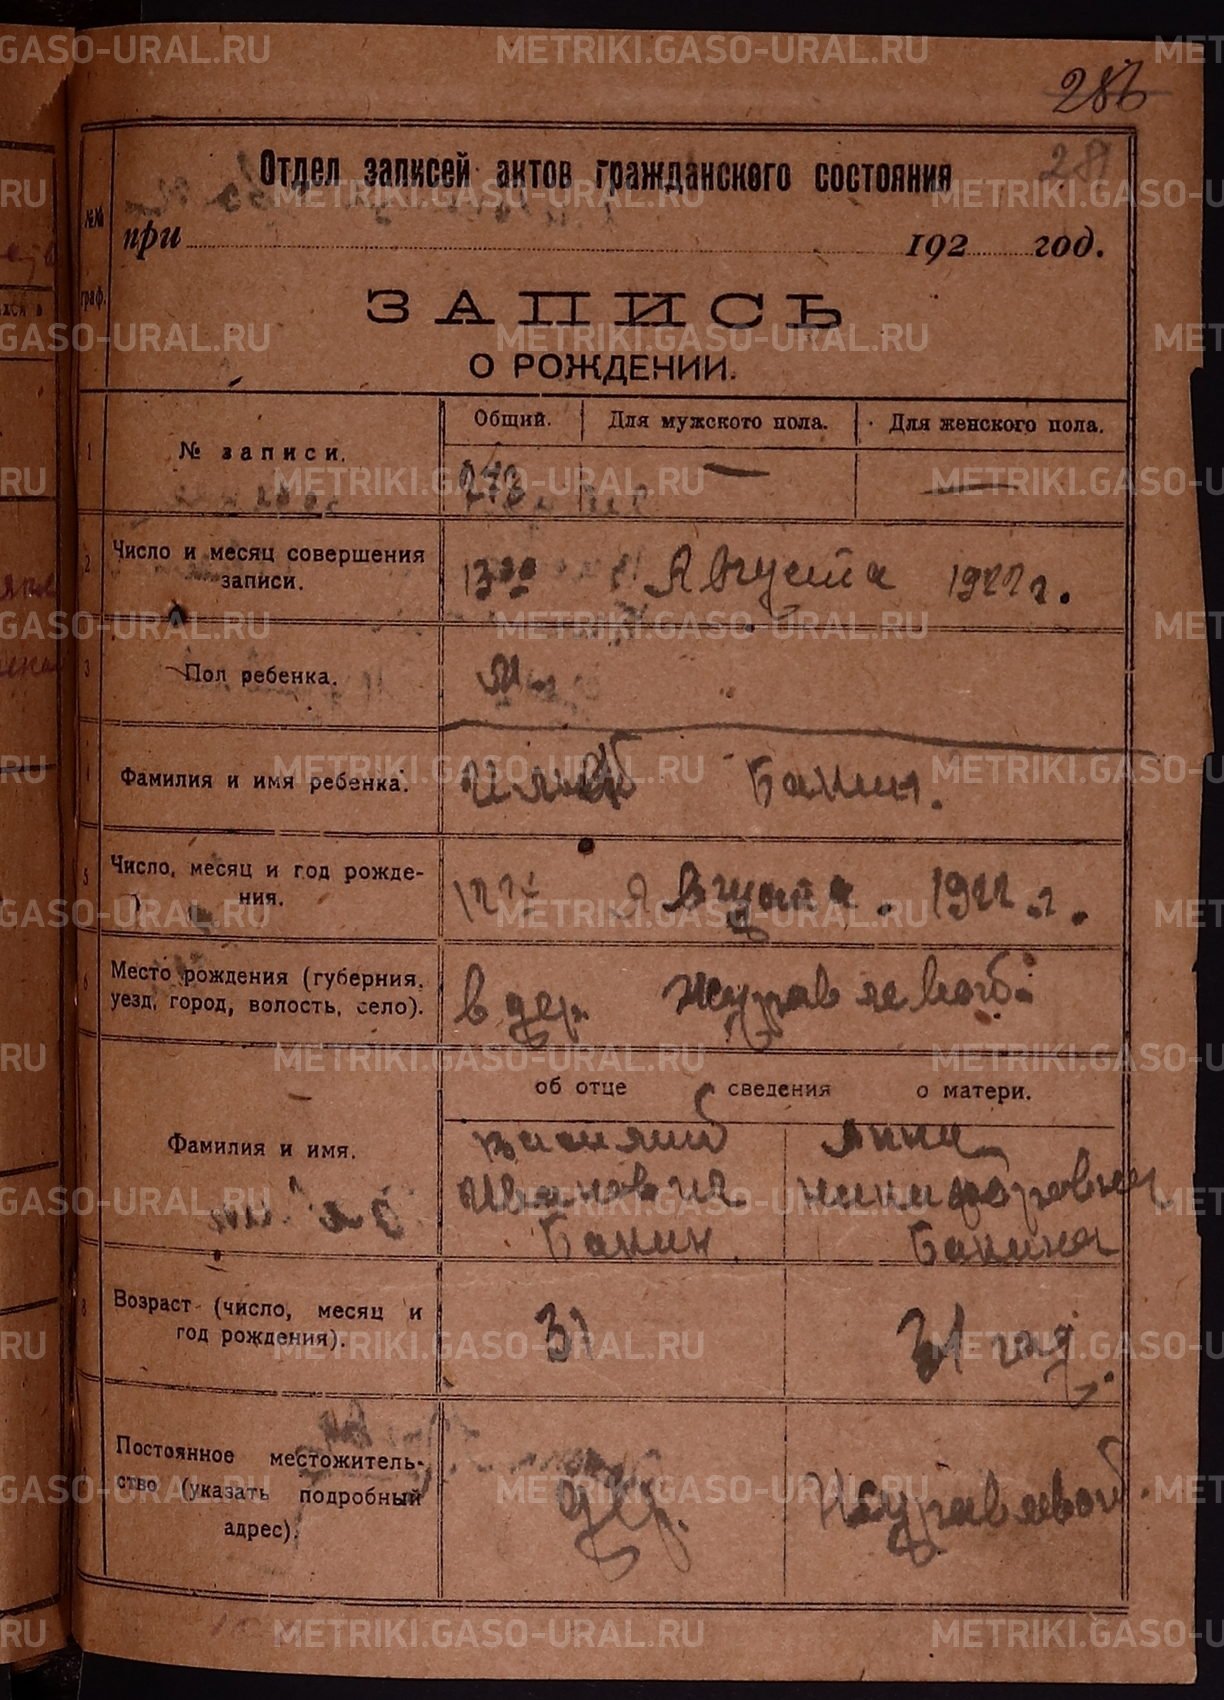 286
281
Отдел записей актов гражданского состояния
№№ граф.
при 192 год.
ЗАПИСЬ
О РОЖДЕНИИ.
Общий. Для мужского пола. Для женского пола.
1 № записи. — —
2 Число и месяц совершения
записи.
13го Августа 1922 г.
3 Пол ребенка. М
Фамилия и имя ребенка. Банин.
5 Число, месяц и год рожде-
ния.
Августа. 1922 г.
6 Место рождения (губерния,
уезд, город, волость, село).
в дер. Журавлевой
об отце сведения о матери.
Фамилия и имя.
Василий Анна
Иванович Никифоровна
Банин Банина
8 Возраст (число, месяц и
год рождения).
31 31 год.
Постоянное местожитель-
ство (указать подробный
адрес).
дер. Журавлевой.
METRIKI.GASO-URAL.RU